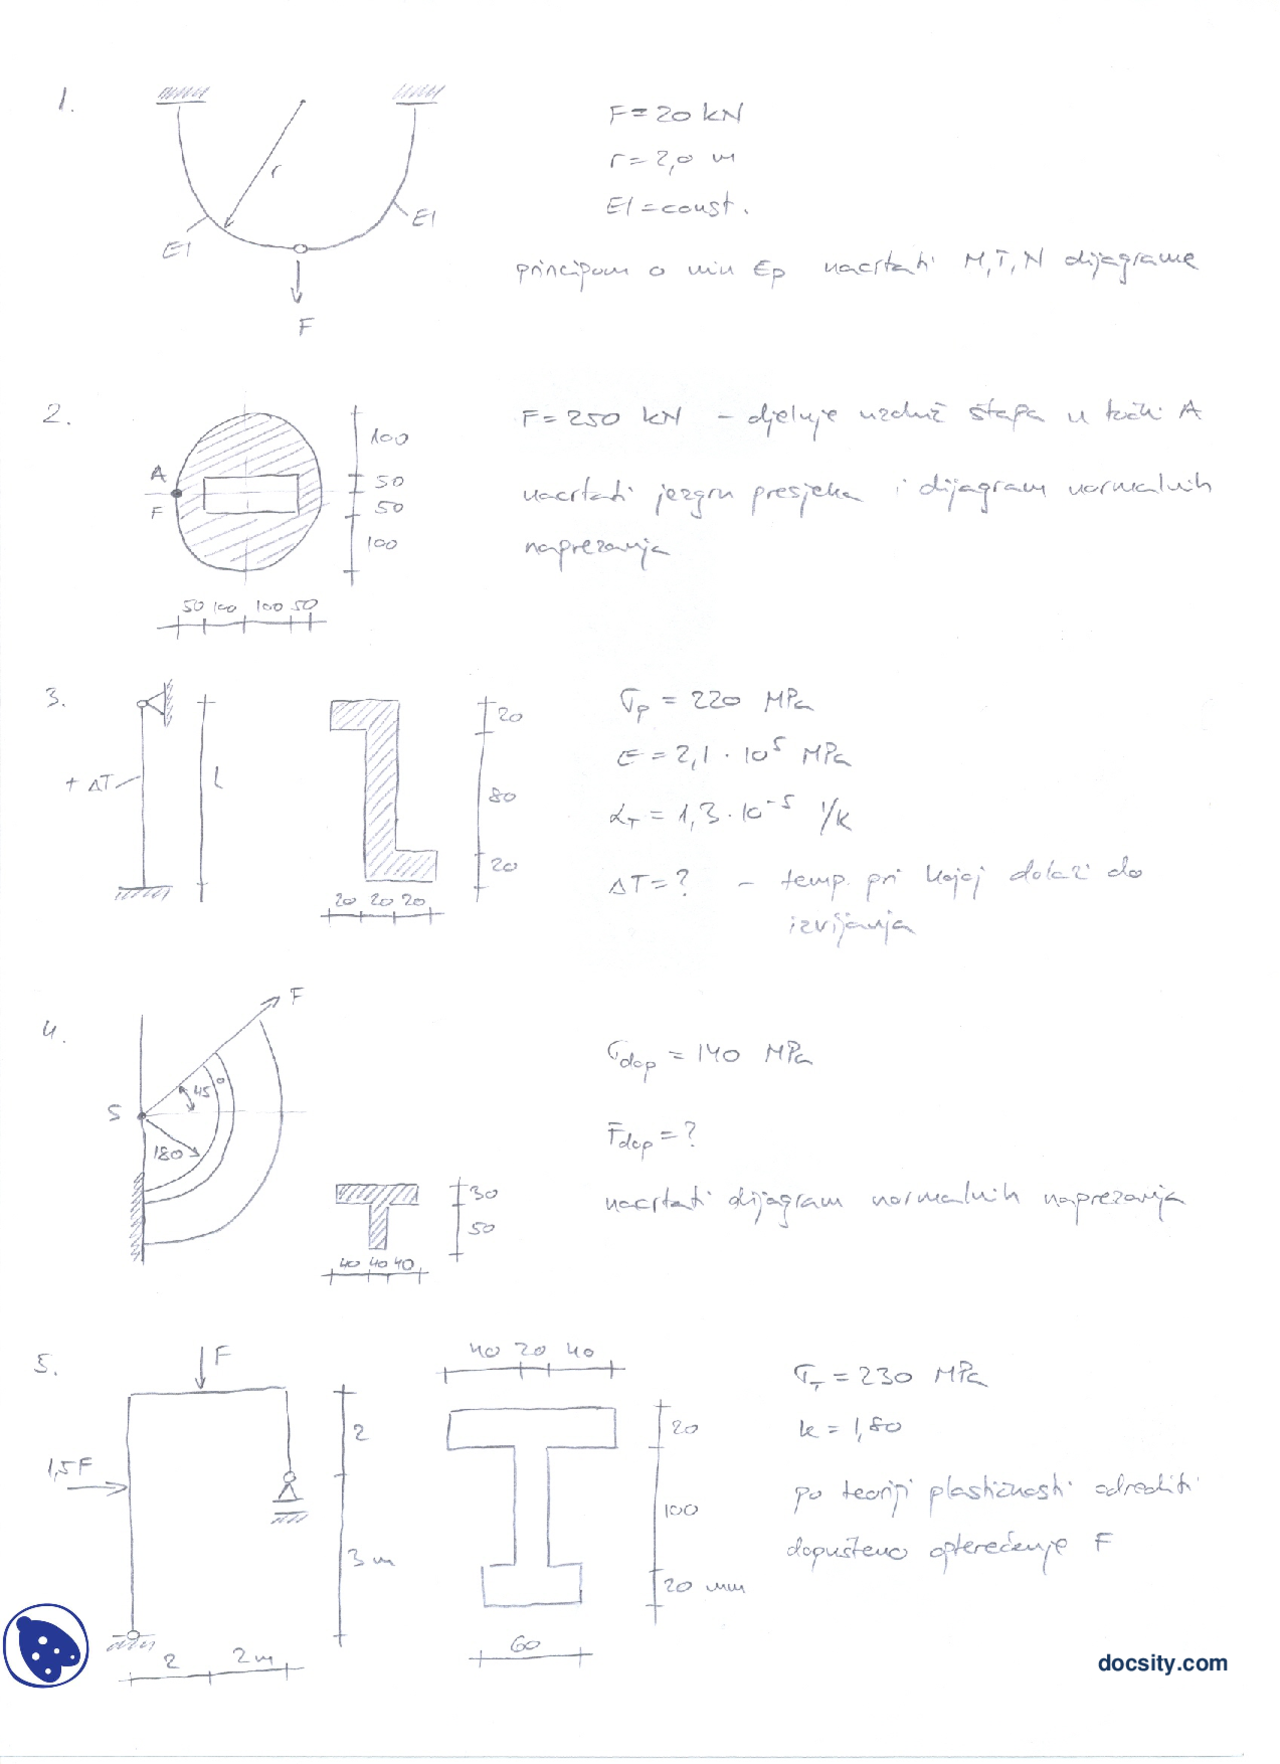 1.
r
EI
EI
F
F = 20 kN
r = 2,0 m
EI = const.
principom o min Ep nacrtati M, T, N dijagrame
2.
A
F
100
50
50
100
50 100 100 50
F = 250 kN - djeluje uzduž štapa u točki A
nacrtati jezgru presjeka i dijagram normalnih
naprezanja
3.
+ ΔT
L
20
80
20
20 20 20
σp = 220 MPa
E = 2,1 · 10⁵ MPa
αT = 1,3 · 10⁻⁵ 1/K
ΔT = ? - temp. pri kojoj dolazi do
izvijanja
4.
F
S
45°
180
30
50
40 40 40
σdop = 140 MPa
Fdop = ?
nacrtati dijagram normalnih naprezanja
5.
F
1,5F
2
3 m
2 2 m
40 20 40
20
100
20 mm
60
σT = 230 MPa
k = 1,80
po teoriji plastičnosti odrediti
dopušteno opterećenje F
docsity.com